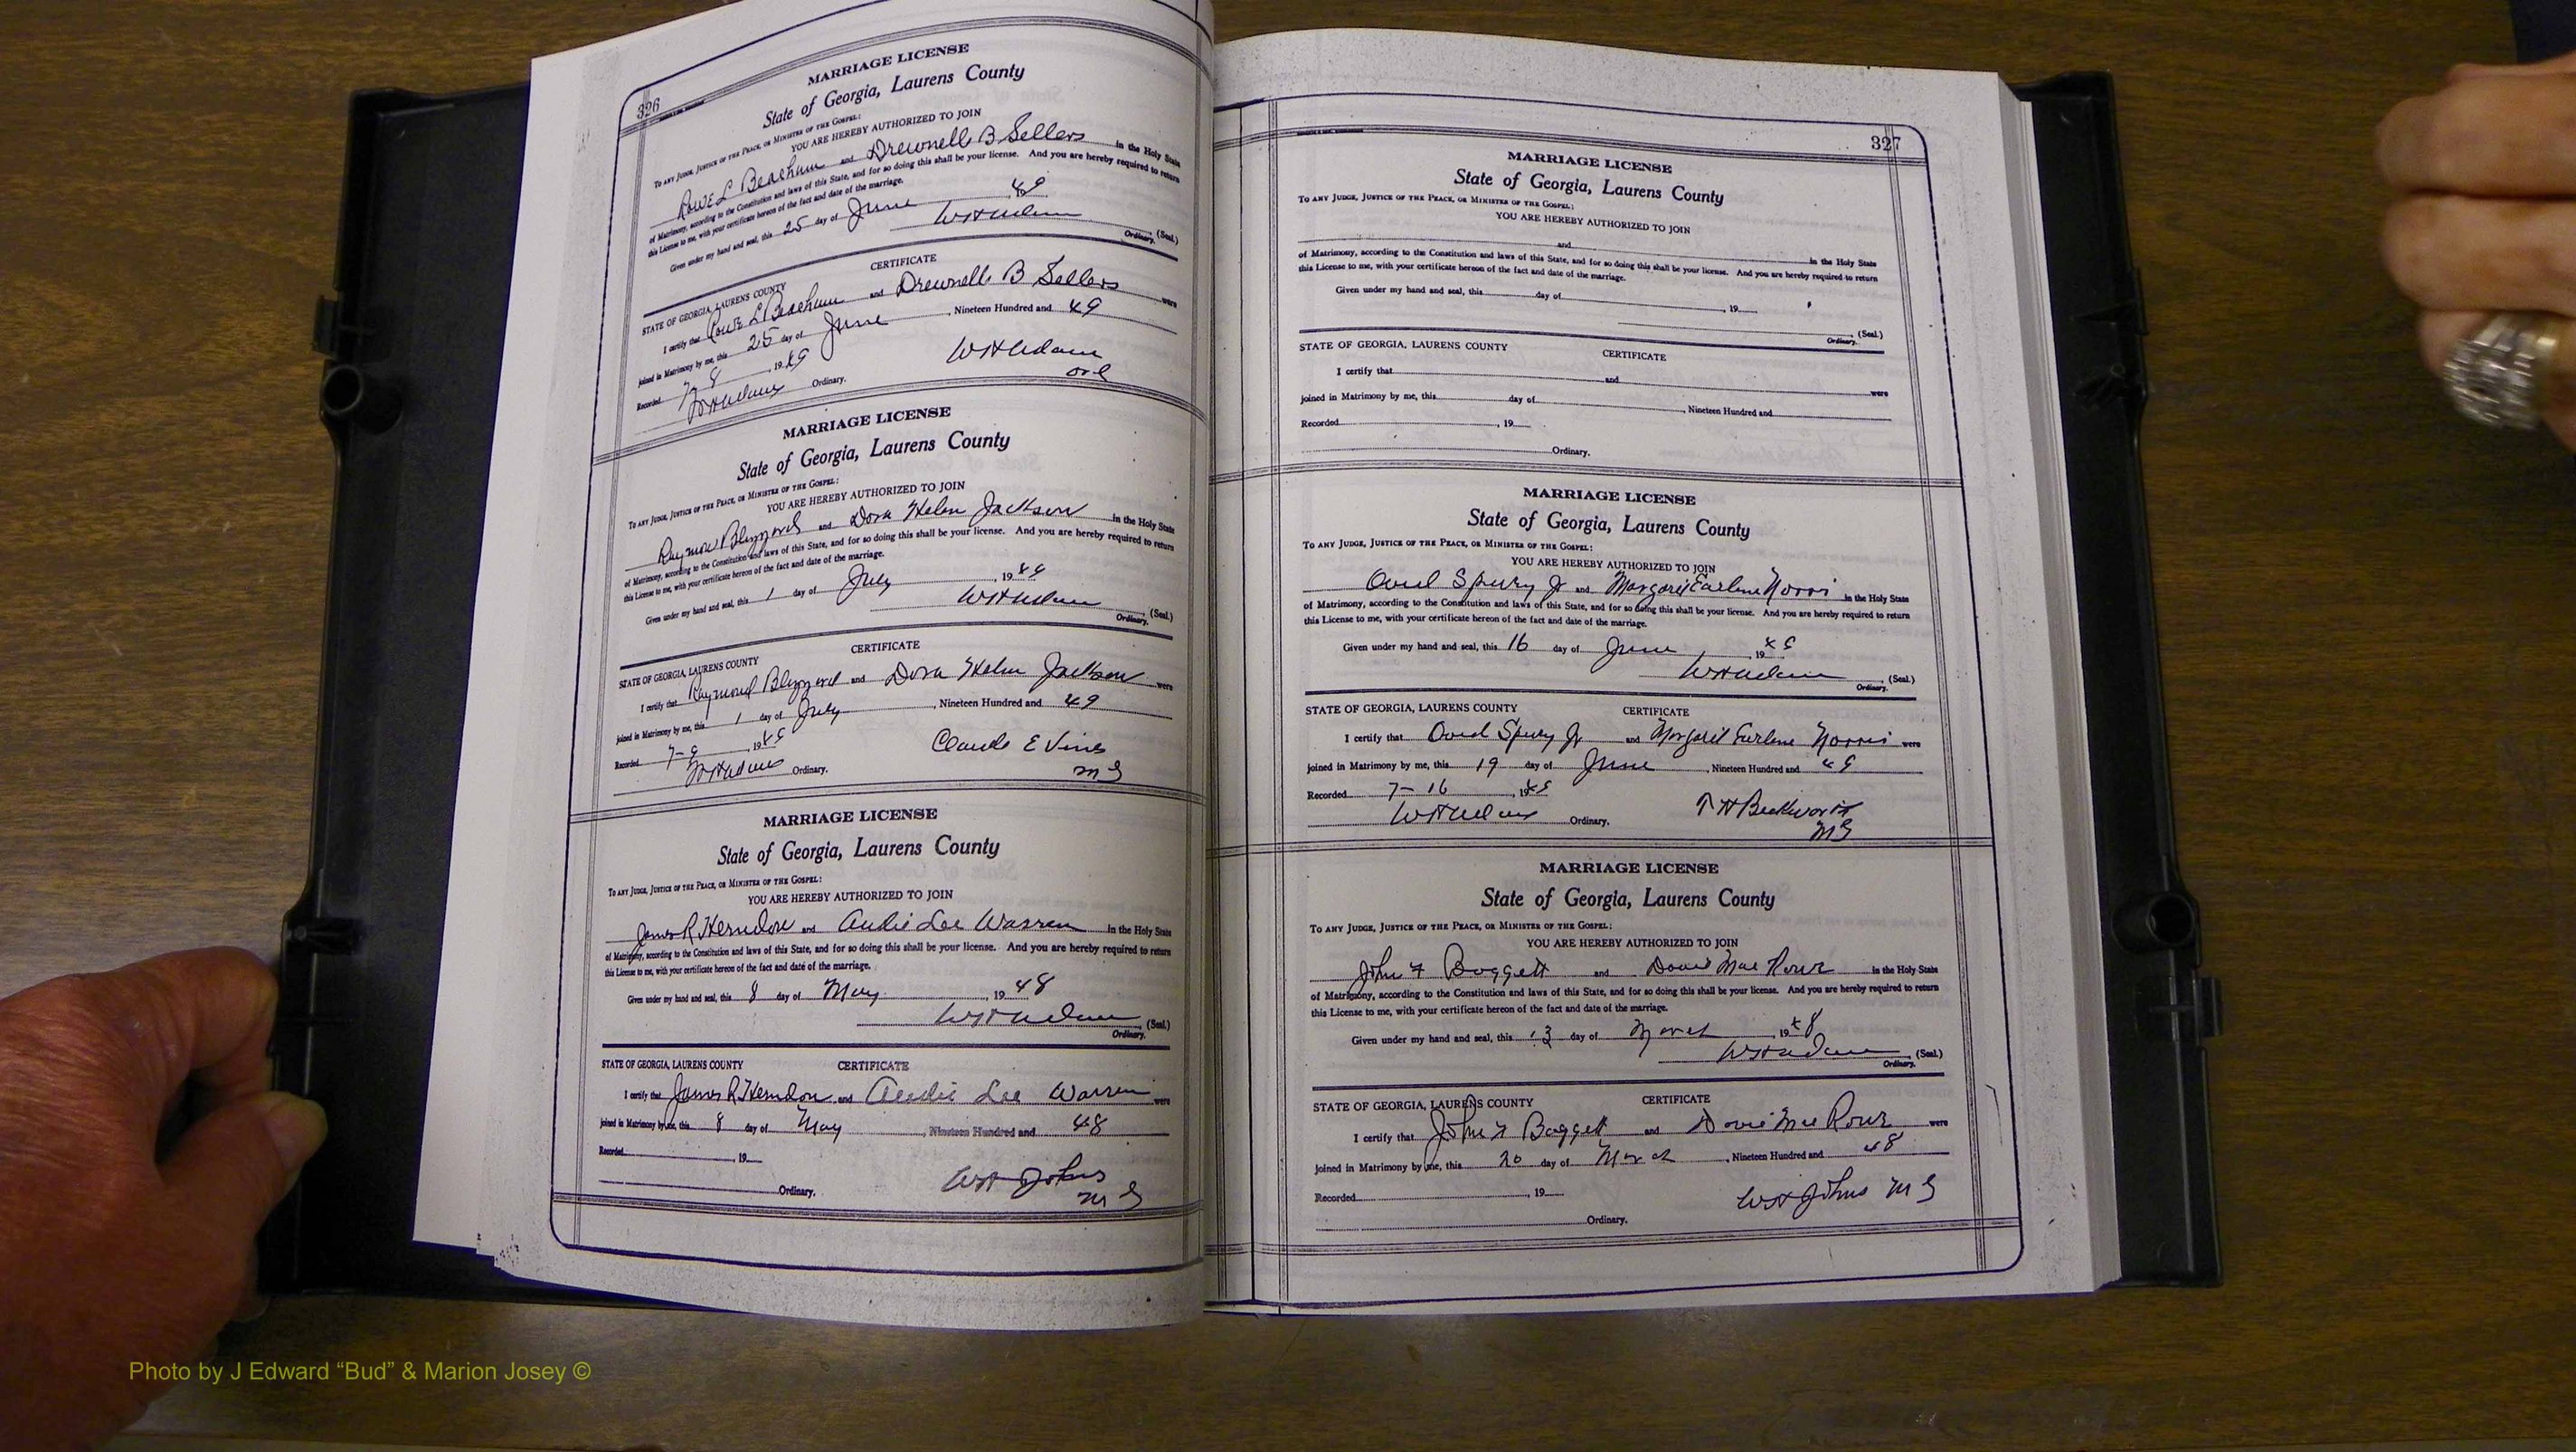 326
MARRIAGE LICENSE
State of Georgia, Laurens County
TO ANY JUDGE, JUSTICE OF THE PEACE, OR MINISTER OF THE GOSPEL:
YOU ARE HEREBY AUTHORIZED TO JOIN
Rowe L Beacham and Drewnell B Sellers in the Holy State
of Matrimony, according to the Constitution and laws of this State, and for so doing this shall be your license. And you are hereby required to return
this License to me, with your certificate hereon of the fact and date of the marriage.
Given under my hand and seal, this 25 day of June 49
WH Adams (Seal.)
Ordinary.
CERTIFICATE
STATE OF GEORGIA, LAURENS COUNTY
I certify that Rowe L Beacham and Drewnell B Sellers were
joined in Matrimony by me, this 25 day of June, Nineteen Hundred and 49
Recorded 7-8, 1949 WH Adams
WH Adams Ordinary. ord
MARRIAGE LICENSE
State of Georgia, Laurens County
TO ANY JUDGE, JUSTICE OF THE PEACE, OR MINISTER OF THE GOSPEL:
YOU ARE HEREBY AUTHORIZED TO JOIN
Raymond Blizzard and Dora Helen Jackson in the Holy State
of Matrimony, according to the Constitution and laws of this State, and for so doing this shall be your license. And you are hereby required to return
this License to me, with your certificate hereon of the fact and date of the marriage.
Given under my hand and seal, this 1 day of July, 1949
WH Adams (Seal.)
Ordinary.
CERTIFICATE
STATE OF GEORGIA, LAURENS COUNTY
I certify that Raymond Blizzard and Dora Helen Jackson were
joined in Matrimony by me, this 1 day of July, Nineteen Hundred and 49
Recorded 7-9, 1949 Claude E Vines
WH Adams Ordinary. MG
MARRIAGE LICENSE
State of Georgia, Laurens County
TO ANY JUDGE, JUSTICE OF THE PEACE, OR MINISTER OF THE GOSPEL:
YOU ARE HEREBY AUTHORIZED TO JOIN
James R Herndon and Audie Lee Warren in the Holy State
of Matrimony, according to the Constitution and laws of this State, and for so doing this shall be your license. And you are hereby required to return
this License to me, with your certificate hereon of the fact and date of the marriage.
Given under my hand and seal, this 8 day of May, 1948
WH Adams (Seal.)
Ordinary.
STATE OF GEORGIA, LAURENS COUNTY CERTIFICATE
I certify that James R Herndon and Audie Lee Warren were
joined in Matrimony by me, this 8 day of May, Nineteen Hundred and 48
Recorded, 19
WH Johns
Ordinary. MG
327
MARRIAGE LICENSE
State of Georgia, Laurens County
TO ANY JUDGE, JUSTICE OF THE PEACE, OR MINISTER OF THE GOSPEL:
YOU ARE HEREBY AUTHORIZED TO JOIN
and in the Holy State
of Matrimony, according to the Constitution and laws of this State, and for so doing this shall be your license. And you are hereby required to return
this License to me, with your certificate hereon of the fact and date of the marriage.
Given under my hand and seal, this day of, 19
(Seal.)
Ordinary.
STATE OF GEORGIA, LAURENS COUNTY CERTIFICATE
I certify that and were
joined in Matrimony by me, this day of, Nineteen Hundred and
Recorded, 19
Ordinary.
MARRIAGE LICENSE
State of Georgia, Laurens County
TO ANY JUDGE, JUSTICE OF THE PEACE, OR MINISTER OF THE GOSPEL:
YOU ARE HEREBY AUTHORIZED TO JOIN
Jr and Margaret Earlene Norris in the Holy State
of Matrimony, according to the Constitution and laws of this State, and for so doing this shall be your license. And you are hereby required to return
this License to me, with your certificate hereon of the fact and date of the marriage.
Given under my hand and seal, this 16 day of June, 1949
WH Adams (Seal.)
Ordinary.
STATE OF GEORGIA, LAURENS COUNTY CERTIFICATE
I certify that Jr and Margaret Earlene Norris were
joined in Matrimony by me, this 19 day of June, Nineteen Hundred and 49
Recorded 7-16, 1949
WH Adams Ordinary. T H Beckworth
MG
MARRIAGE LICENSE
State of Georgia, Laurens County
TO ANY JUDGE, JUSTICE OF THE PEACE, OR MINISTER OF THE GOSPEL:
YOU ARE HEREBY AUTHORIZED TO JOIN
John F Baggett and Dovie Mae Rowe in the Holy State
of Matrimony, according to the Constitution and laws of this State, and for so doing this shall be your license. And you are hereby required to return
this License to me, with your certificate hereon of the fact and date of the marriage.
Given under my hand and seal, this 13 day of March 1948
WH Adams (Seal.)
Ordinary.
STATE OF GEORGIA, LAURENS COUNTY CERTIFICATE
I certify that John F Baggett and Dovie Mae Rowe were
joined in Matrimony by me, this 20 day of March, Nineteen Hundred and 48
Recorded, 19 WH Johns MG
Ordinary.
Photo by J Edward “Bud” & Marion Josey ©